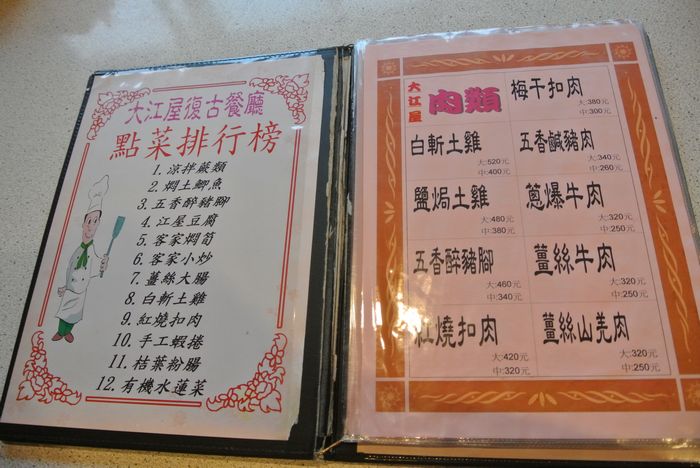 大江屋復古餐廳
點菜排行榜
1. 涼拌蕨類
2. 燜土鯽魚
3. 五香醉豬腳
4. 江屋豆腐
5. 客家燜筍
6. 客家小炒
7. 薑絲大腸
8. 白斬土雞
9. 紅燒扣肉
10. 手工蝦捲
11. 桔葉粉腸
12. 有機水蓮菜
大江屋
肉類
梅干扣肉
大:380元
中:300元
白斬土雞
大:520元
中:400元
五香鹹豬肉
大:340元
中:260元
鹽焗土雞
大:480元
中:380元
蔥爆牛肉
大:320元
中:250元
五香醉豬腳
大:460元
中:340元
薑絲牛肉
大:320元
中:250元
紅燒扣肉
大:420元
中:320元
薑絲山羌肉
大:320元
中:250元